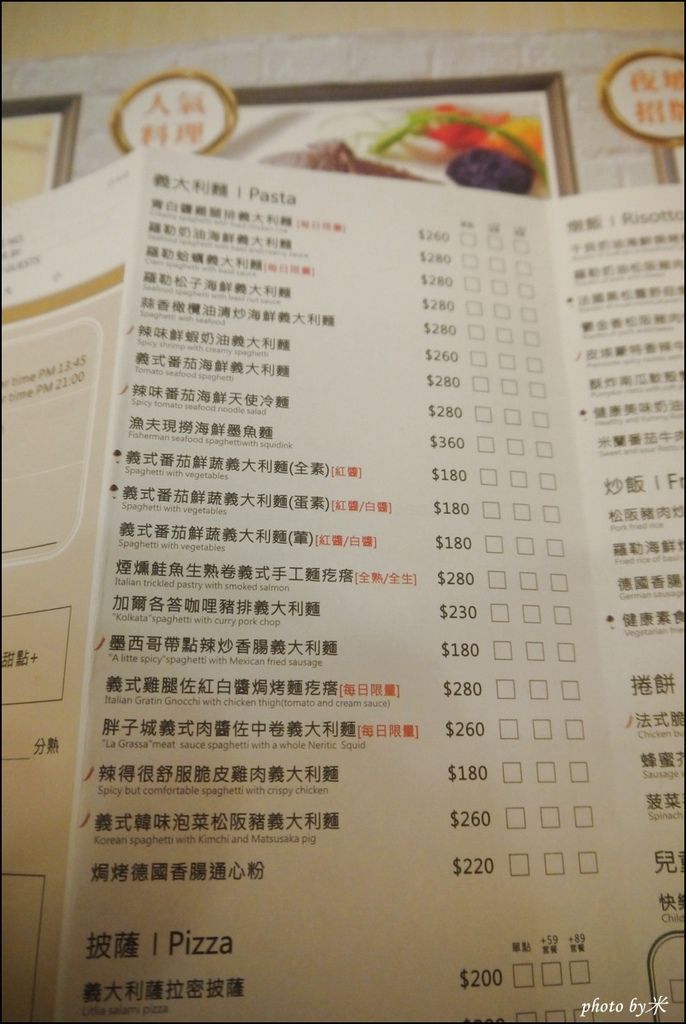 人氣
料理
義大利麵 | Pasta
青白醬雞腿排義大利麵[每日限量]
$260
羅勒奶油海鮮義大利麵
$280
羅勒蛤蠣義大利麵[每日限量]
$280
羅勒松子海鮮義大利麵
Seafood spaghetti with basil nut sauce
$280
蒜香橄欖油清炒海鮮義大利麵
Spaghetti with seafood
$280
辣味鮮蝦奶油義大利麵
Spicy shrimp with creamy spaghetti
$260
義式番茄海鮮義大利麵
Tomato seafood spaghetti
$280
辣味番茄海鮮天使冷麵
Spicy tomato seafood noodle salad
$280
漁夫現撈海鮮墨魚麵
Fisherman seafood spaghettiwith squidink
$360
義式番茄鮮蔬義大利麵(全素)[紅醬]
Spaghetti with vegetables
$180
義式番茄鮮蔬義大利麵(蛋素)[紅醬/白醬]
Spaghetti with vegetables
$180
義式番茄鮮蔬義大利麵(葷)[紅醬/白醬]
Spaghetti with vegetables
$180
煙燻鮭魚生熟卷義式手工麵疙瘩[全熟/全生]
Italian trickled pastry with smoked salmon
$280
加爾各答咖哩豬排義大利麵
"Kolkata"spaghetti with curry pork chop
$230
墨西哥帶點辣炒香腸義大利麵
"A litte spicy"spaghetti with Mexican fried sausage
$180
義式雞腿佐紅白醬焗烤麵疙瘩[每日限量]
Italian Gratin Gnocchi with chicken thigh(tomato and cream sauce)
$280
胖子城義式肉醬佐中卷義大利麵[每日限量]
"La Grassa"meat sauce spaghetti with a whole Neritic Squid
$260
辣得很舒服脆皮雞肉義大利麵
Spicy but comfortable spaghetti with crispy chicken
$180
義式韓味泡菜松阪豬義大利麵
Korean spaghetti with Kimchi and Matsusaka pig
$260
焗烤德國香腸通心粉
$220
披薩 | Pizza
單點 +59套餐 +89套餐
義大利薩拉密披薩
Litlia salami pizza
$200
time PM 13:45
time PM 21:00
甜點+
分熟
燉飯 | Risotto
健康美味奶油
米蘭番茄牛肉
炒飯 | Fr
松阪豬肉炒
Pork fried rice
羅勒海鮮
Fried rice of basil
德國香腸
German sausage
健康素食
Vegetarian frie
捲餅
法式脆
Chicken bu
蜂蜜芥
Sausage
菠菜
Spinach
兒童
快樂
Child
photo by 米